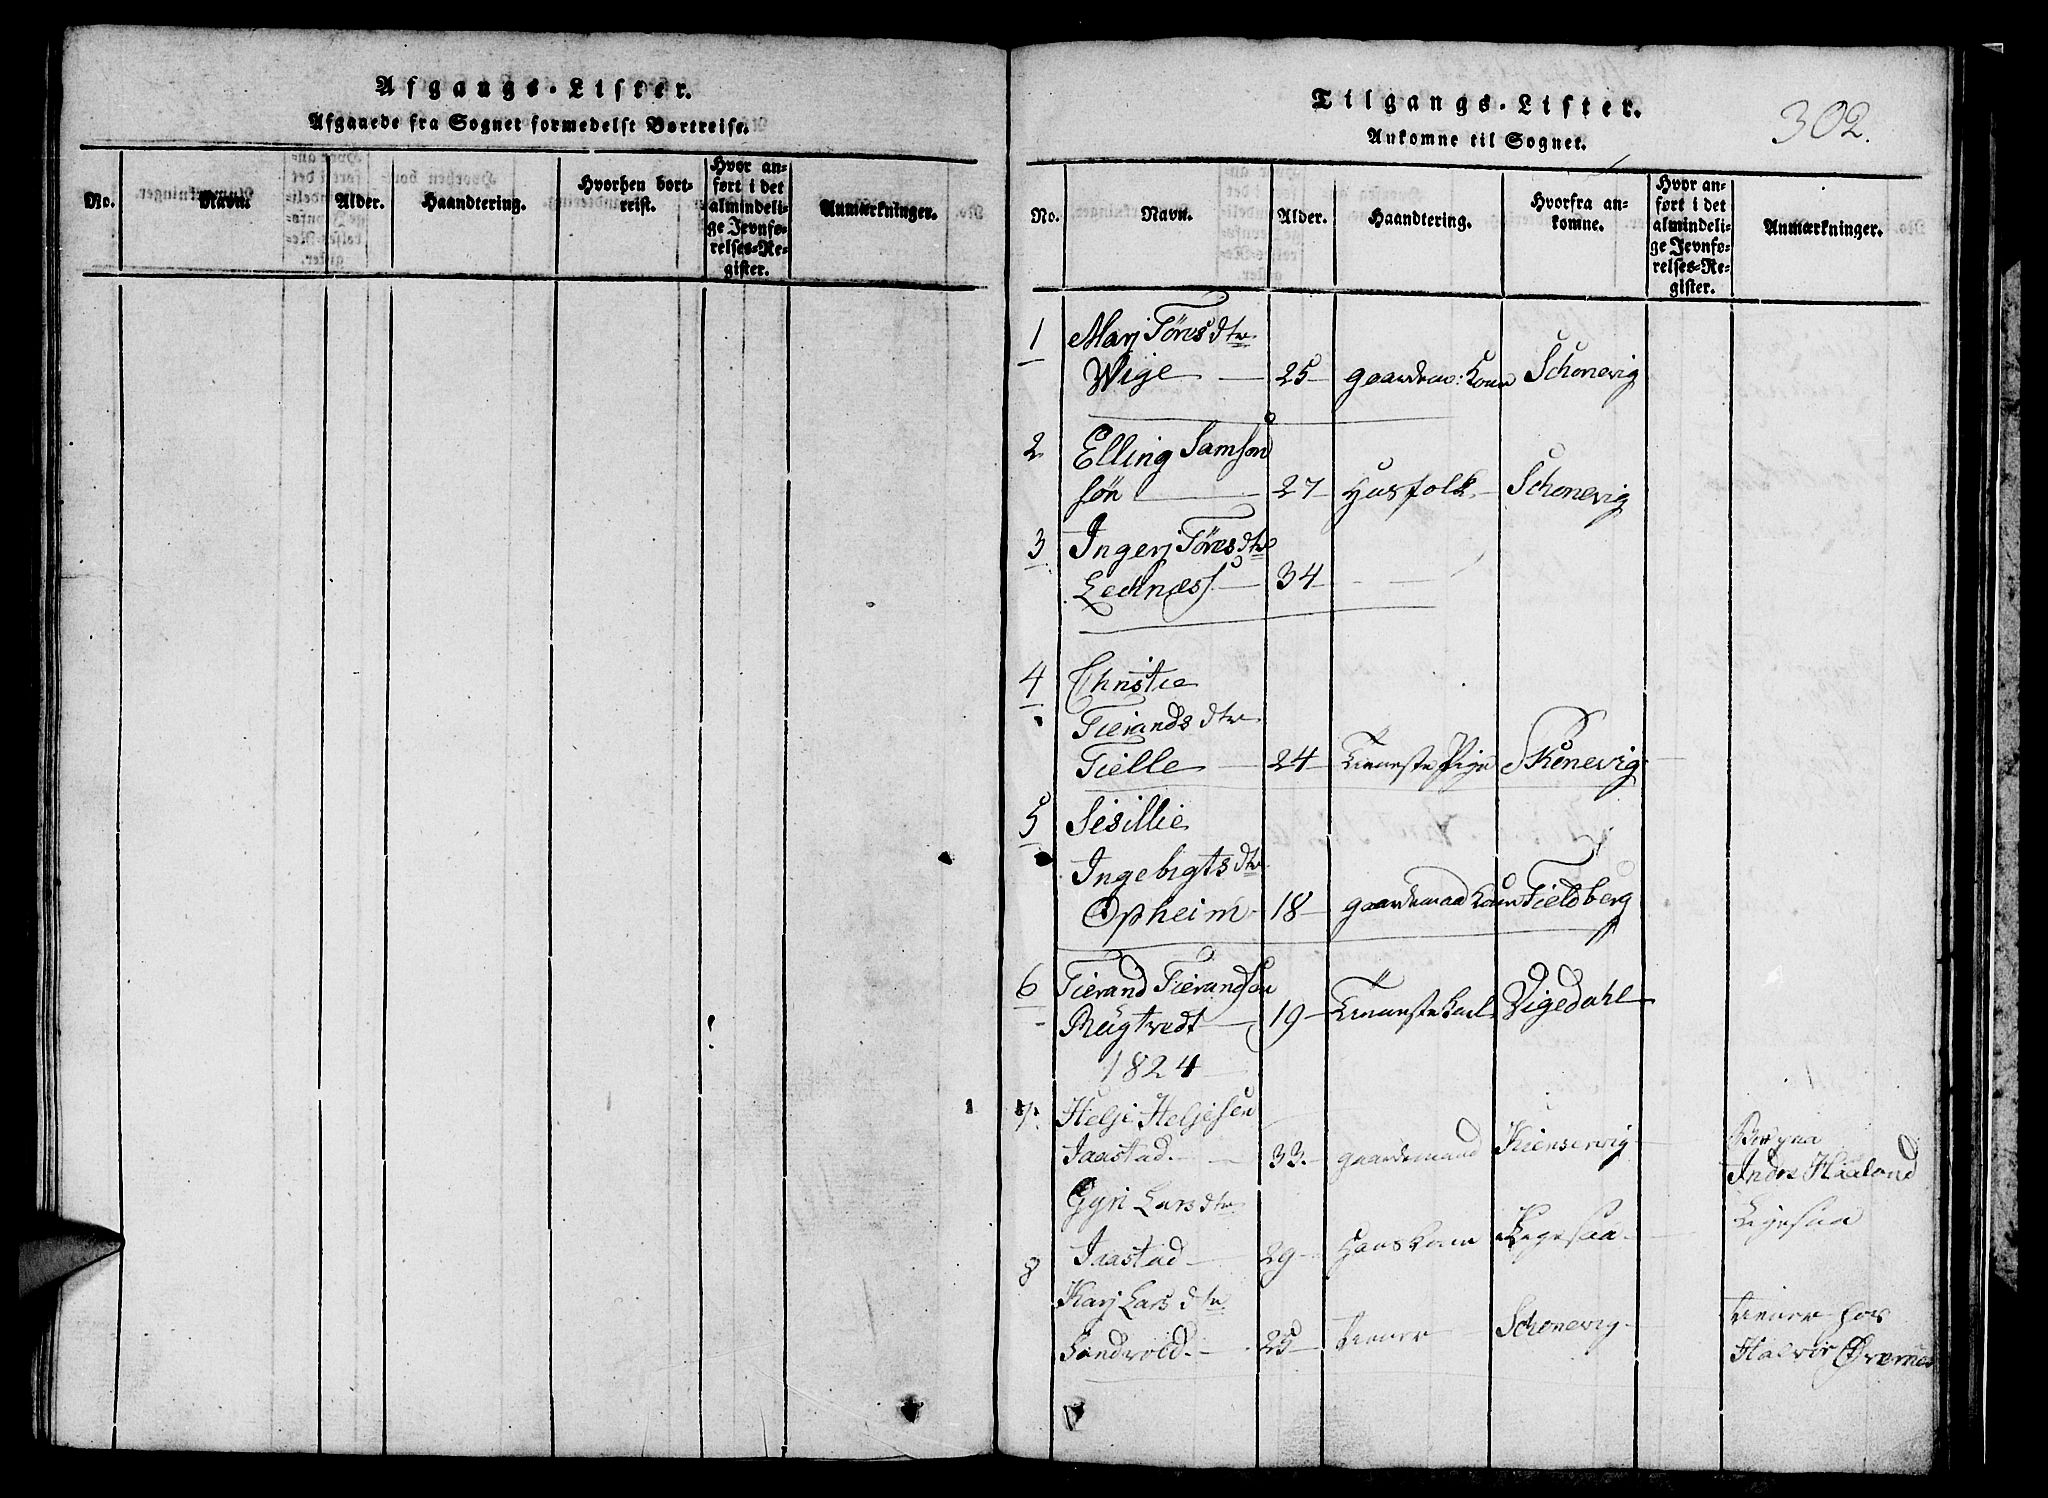 Afgangs-Lister.
Afgaaede fra Sognet formedelst Bortreise.
No.
Navn.
Alder.
Haandtering.
Hvorhen bort-
reist.
Hvor an-
ført i det
almindeli-
ge Jevnfø-
relses-Re-
gister.
Anmærkninger.
Tilgangs-Lister.
302.
Ankomne til Sognet.
No.
Navn.
Alder.
Haandtering.
Hvorfra an-
komne.
Hvor an-
ført i det
almindeli-
ge Jevnfø-
relses-Re-
gister.
Anmærkninger.
1 Marj Töresdtr
Wige 25 gaardm: Kone Schonevig
2 Elling Samson
søn 27 Husfolk Schonevig
3 Ingerj Töresdtr
Lechness 34
4 Christie
Tierandsdtr
Tielle 24 Tieneste Pige Skonevig
5 Sesillie
Ingebigtsdtr
Opheim 18 gaardmand Kone Fieldberg
6 Tierand Tierandsøn
Rügtvedt 19 Tieneste Karl Vigedahl
1824
7. Helje Heljesen
Jaastad 33 gaardmand Kienservig
Indre Haaland
Gyri Larsdtr
Jaastad 29 Hans Kone
8 Karj Larsdtr
Sandvold 25 tiener Schonevig
tiener hos
Halvor